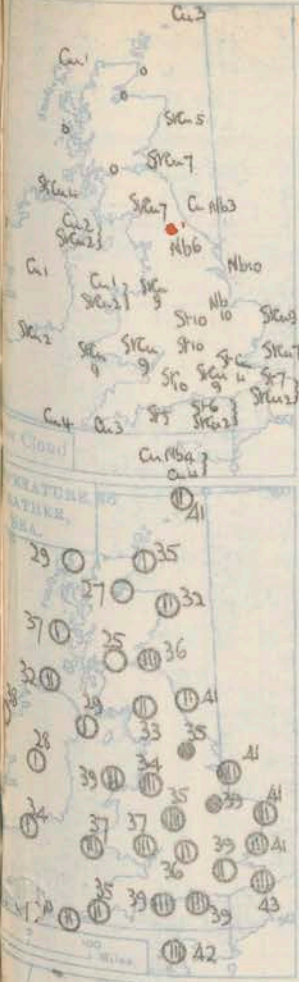 Cu 3
Cu 1
0
0
StCu 5
0
StCu 7
0
StCu 4
StCu 7
Cu Nb 3
Cu 2
StCu 2}
Nb 6
Cu 1
Nb 10
Cu 1
StCu 2}
StCu
9
Nb
10
StCu 9
St 10
StCu 2
StCu
9
StCu
9
St 10
StCu 7
St
10
StCu
9
St 7
StCu 2}
Cu 4
Cu 3
St 5
St 6
StCu 2}
Cloud
Cu Nb 4
Cu 4}
ERATURE,
EATHER,
SEA.
41
29
35
27
32
37
35
36
32
29
33
41
35
28
34
41
39
35
39
41
34
37
37
39
41
36
35
39
39
43
100
Miles
42